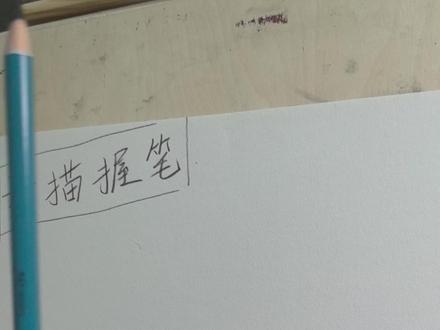 描握笔